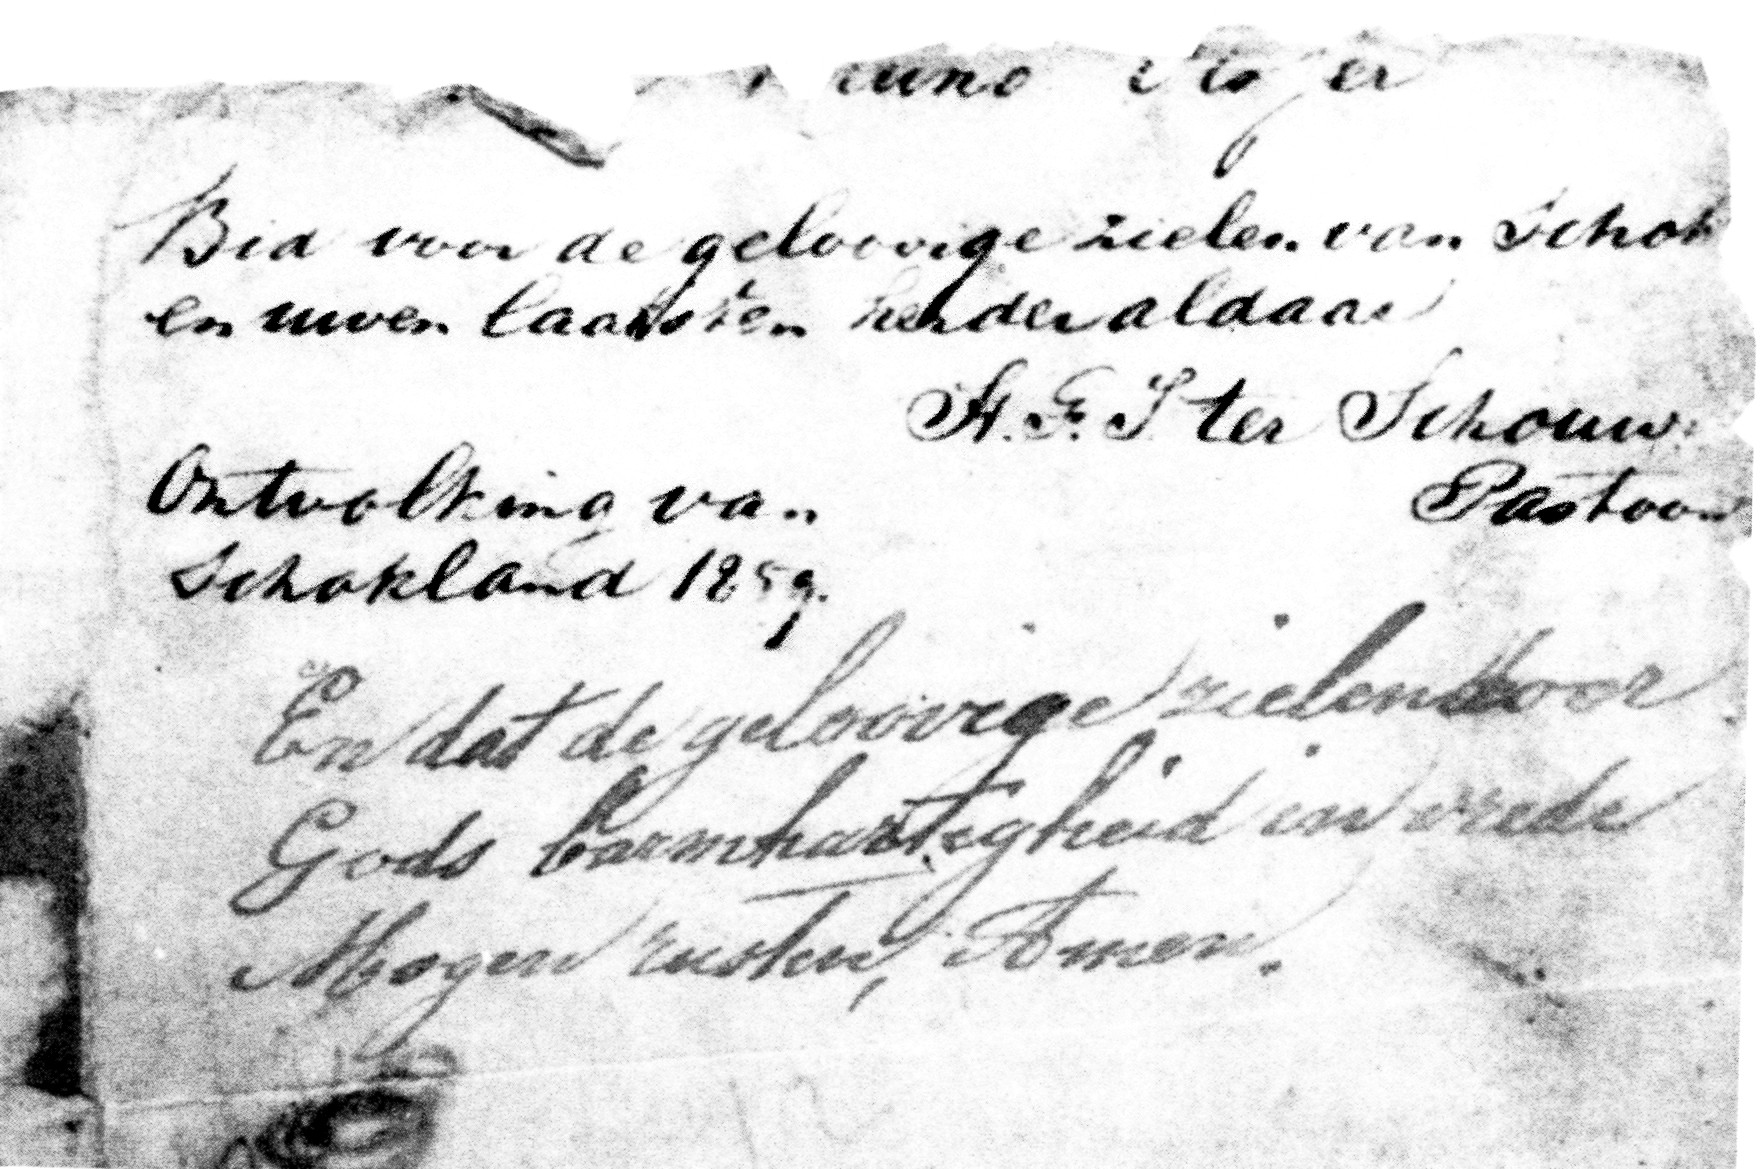 Bid voor de geloovige zielen van Schok
en uwen laatsten herder aldaar
H. G. J ter Schouw
Pastoor
Ontvolking van
Schokland 1859.
En dat de geloovige zielen door
Gods barmhartigheid in vrede
Mogen rusten, Amen.